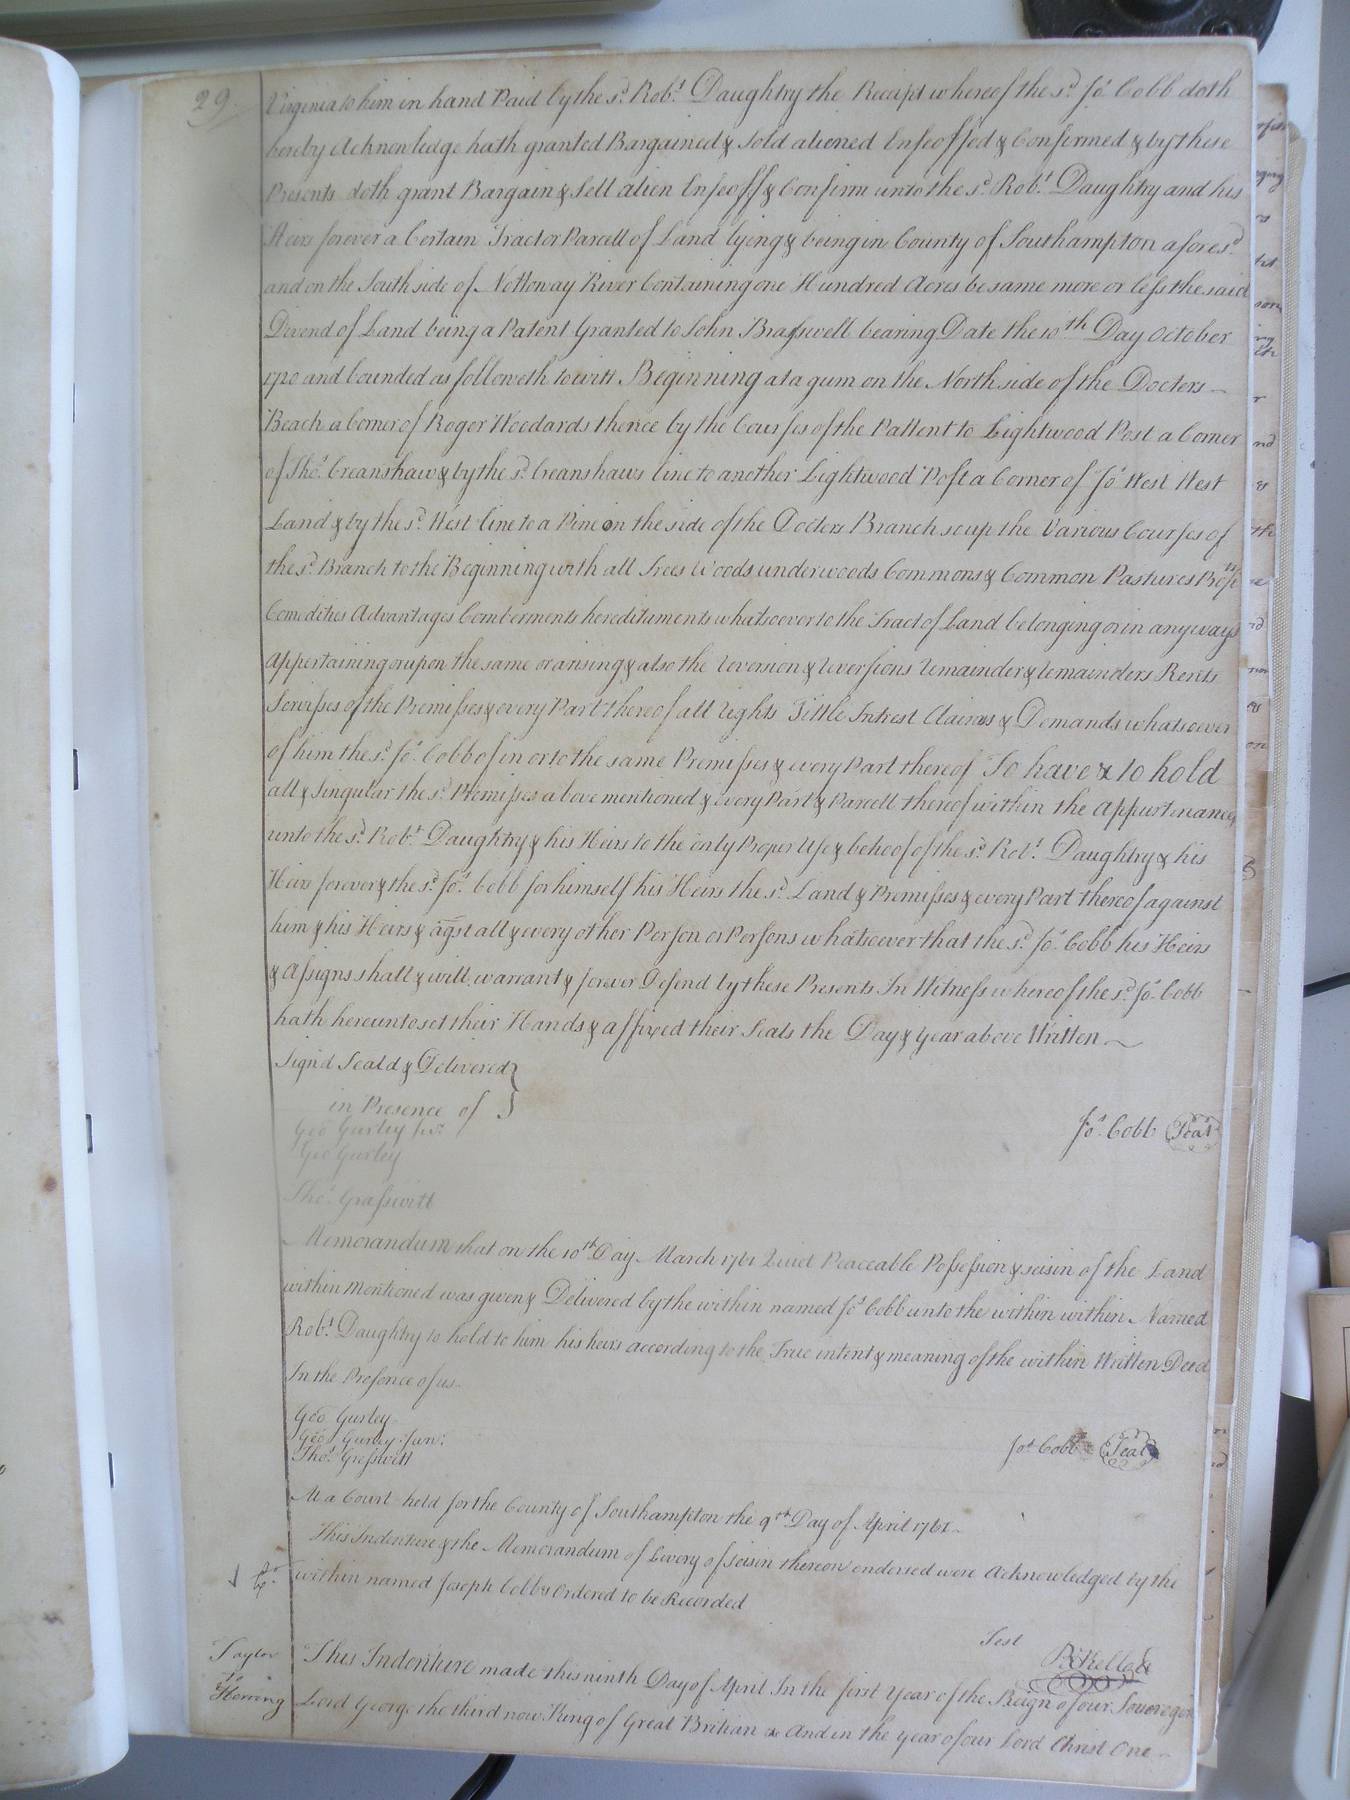 29
Virginia to him in hand Paid by the sd. Robt. Daughtry the Receipt whereof the sd. Jos. Cobb doth
hereby Acknowledge hath granted Bargained & Sold aliened Enfeoffed & Confirmed & by these
Presents doth grant Bargain & Sell alien Enfeoff & Confirm unto the sd. Robt. Daughtry and his
Heirs forever a Certain Tract or Parcell of Land lying & being in County of Southampton aforesd.
and on the South side of Nottoway River Containing one Hundred Acres be same more or less the said
Devend of Land being a Patent Granted to John Brasswell bearing Date the 10th Day October
1720 and bounded as followeth towitt Beginning at a gum on the North side of the Docters
Beach a Corner of Roger Woodards thence by the Courses of the Pattent to Lightwood Post a Corner
of Thos. Creanshaw & by the sd. Creanshaws line to another Lightwood Post a Corner of Jos. West West
Land & by the sd. West line to a Pine on the side of the Docters Branch so up the Various Courses of
the sd. Branch to the Beginning with all Trees Woods underwoods Commons & Common Pastures Profits
Comodities Advantages hereditaments whatsoever to the Tract of Land belonging or in anyways
Appertaining or upon the same or arising & also the reversion & reversions remainder & remainders Rents
Servisses of the Premisses & every Part thereof all rights Tittle Intrest Claims & Demands whatsoever
of him the sd. Jos. Cobb of in or to the same Premisses & every Part thereof To have & to hold
all & Singular the sd. Premisses above mentioned & every Part & Parcell thereof within the Appurtinances
unto the sd. Robt. Daughtry & his Heirs to the only Proper Use & behoof of the sd. Robt. Daughtry & his
Heirs forever & the sd. Jos. Cobb for himself his Heirs the sd. Land & Premisses & every Part thereof against
him & his Heirs & agst all & every other Person or Persons whatsoever that the sd. Jos. Cobb his Heirs
& Assigns shall & will warrant & forever Defend by these Presents In Witness whereof the sd. Jos. Cobb
hath hereunto set their Hands & affixed their Seals the Day & Year above Written
Sign'd Seald & Delivered
in Presence of
Geo Gurley Jur.
Geo Gurley
Jos. Cobb Seal
Thos. Grasswitt
Memorandum that on the 10th Day March 1761 Quiet Peaceable Possession & seisin of the Land
within Mentioned was given & Delivered by the within named Jos. Cobb unto the within within Named
Robt. Daughtry to hold to him his heirs according to the True intent & meaning of the within Written Deed
In the Presence of us
Geo Gurley
Geo Gurley Jun:
Thos. Grasswitt
Jos. Cobb Seal
At a Court held for the County of Southampton the 9th Day of April 1761
This Indenture & the Memorandum of Livery of Seisin thereon endorsed were Acknowledged by the
within named Joseph Cobb & Ordered to be Recorded
Test
Taylor
to
Herring
This Indenture made this ninth Day of April In the first Year of the Reign of our Sovereign
Lord George the third now King of Great Britian & And in the year of our Lord Christ One